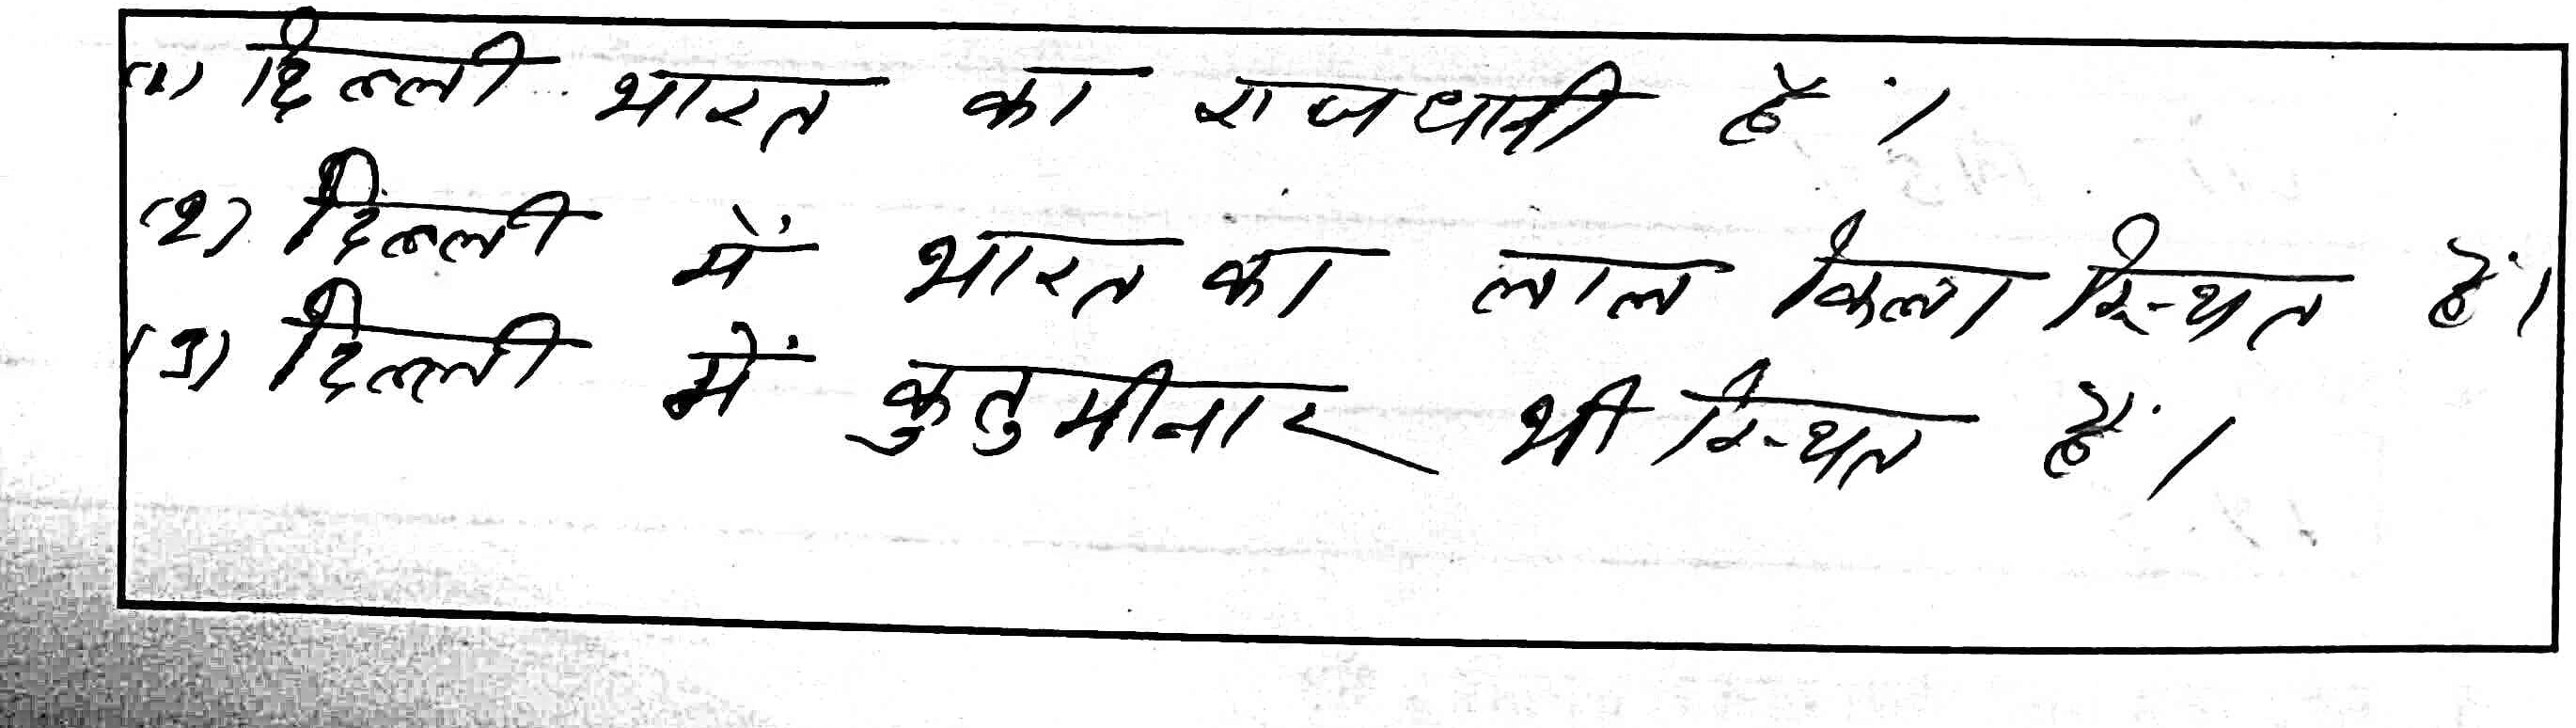 (1) दिल्ली भारत का राजधानी हैं।
(2) दिल्ली में भारत का लाल किला स्थित हैं।
(3) दिल्ली में कुतुमीनार भी स्थित हैं।